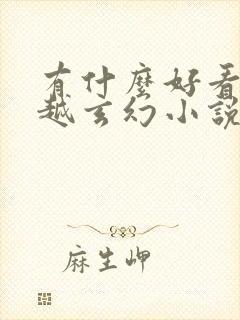 有什麼好看
越玄幻小說
麻生岬